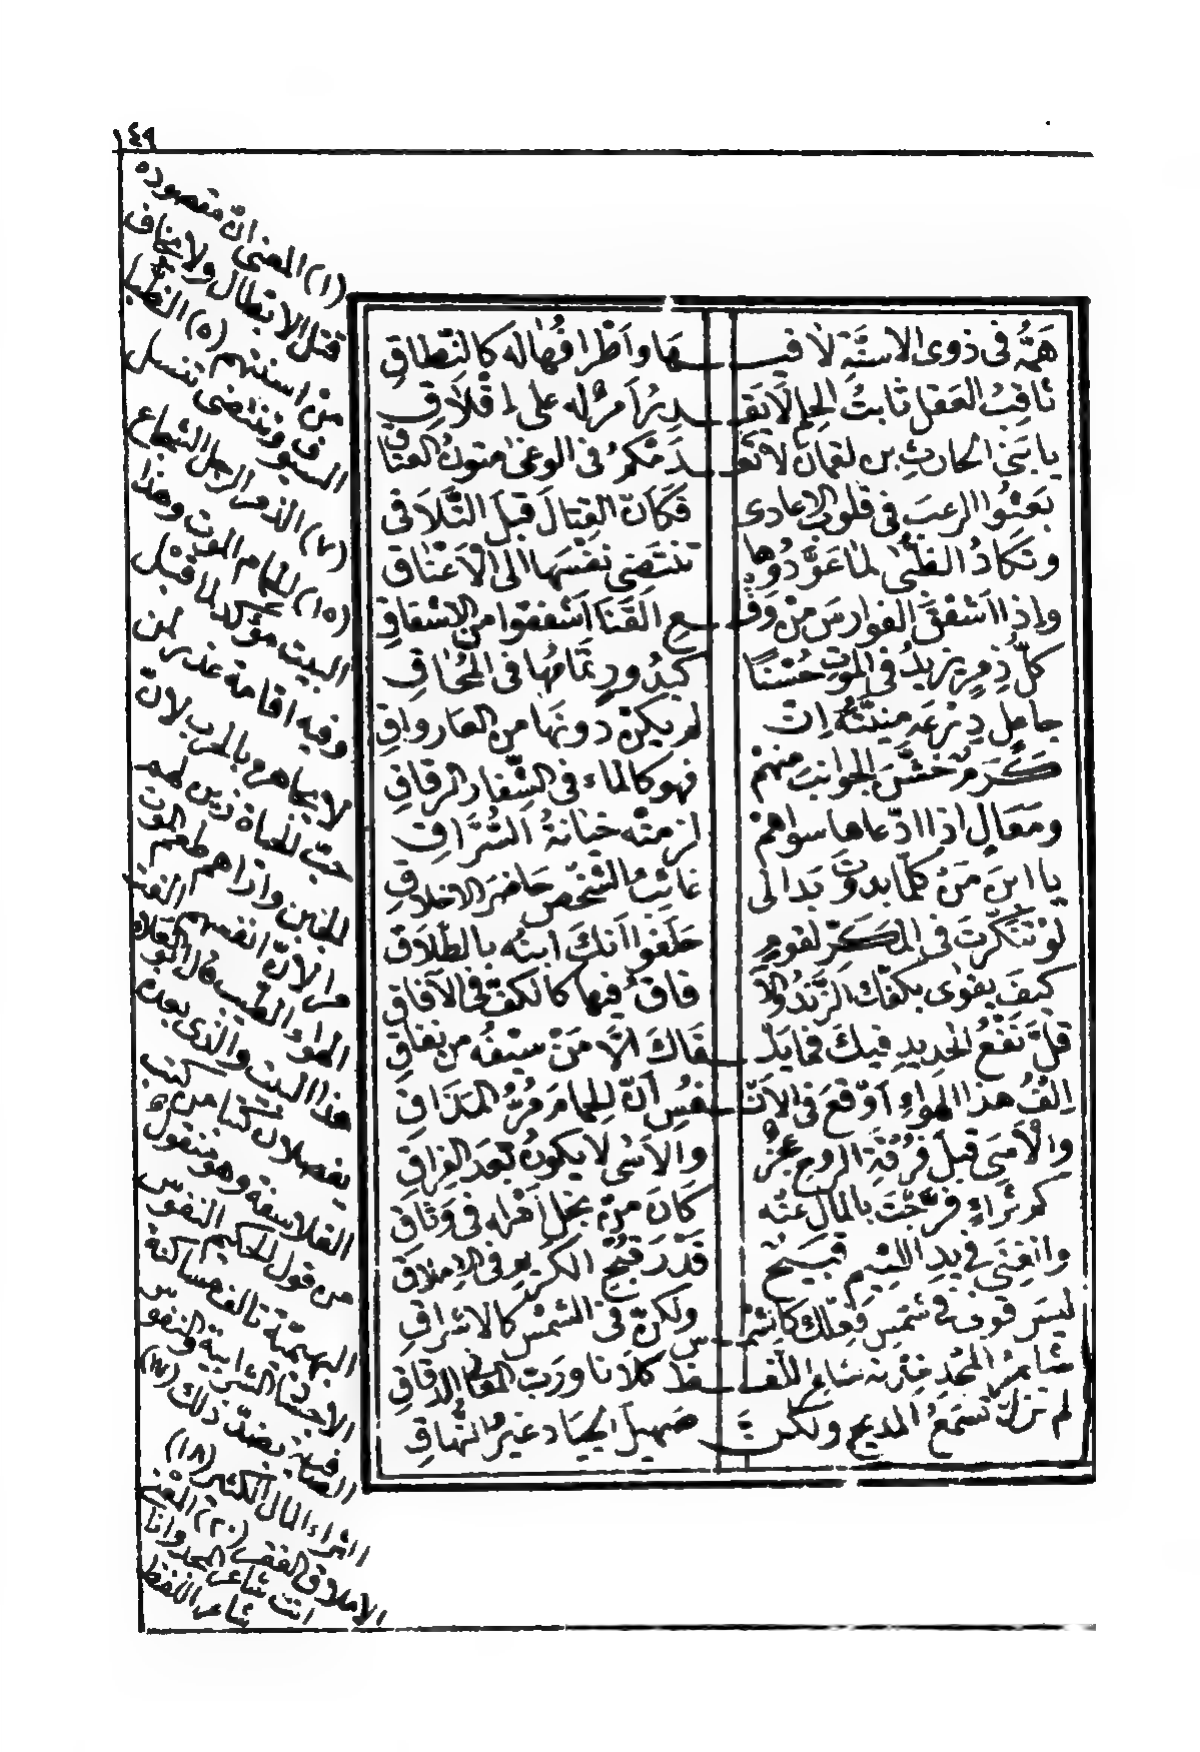 ١٤٩
همّه فى ذوى الاسنّة لا فيـ ـها وأطْرافُها له كالنّطاقِ
ثاقِبُ العَقلِ ثابتُ الحِلمِ لا تَقـ ـدِرُ أمرٌ له على إِقْلاقِ
يا بَنى الحارثِ بن لقمانَ لا تَعْـ ـدَمْكمُ فى الوغى متونُ العتاقِ
بَعَثُوا الرعبَ فى قلوب الاعادى فكأنّ القِتالَ قبلَ التَّلاقى
وتكادُ الظُّبى لما عَوَّدُوها تنتضى نفْسَها الى الأعناقِ
وإذا أشفقَ الفوارسُ مِنْ وَقْـ ـعِ القَنا أشفقوا من الإشفاقِ
كلُّ ذِمرٍ يزيدُ فى الموتِ حُسْنًا كبُدُورٍ تَمامُها فى المُحاقِ
جاعلٍ دِرْعَه منيَّتَه اِن لم يكنْ دونَها من العار واقِ
كرمٌ خشَّنَ الجوانبَ منهم فهو كالماء فى الشّفار الرقاقِ
ومَعالٍ إذا ادّعاها سواهم لزمتْه خيانةُ السُّرَّاقِ
يا ابنَ مَنْ كلّما بدوتَ بدا لى غائبَ الشّخصِ حاضرَ الاخلاقِ
لوْ تَنَكَّرْتَ فى المكرّ لقومٍ حلفوا أنكَ ابنُه بالطّلاقِ
كيفَ يقوى بكفّك الزَّنْدُ والآ فاقُ فيها كالكفّ فى الآفاقِ
قلَّ نَفْعُ الحديدِ فيكَ فما يلـ ـقاكَ إلاّ مَنْ سيْفُه من نفاقِ
إلْفُ هذا الهواءِ أوْقَعَ فى الأنـ ـفُسِ أنّ الحِمامَ مُرُّ المذاقِ
والأسى قبلَ فُرْقةِ الروحِ عجْزٌ والأسى لا يكونُ بعدَ الفراقِ
كم ثراءٍ فرّجْتَ بالمالِ عنْه كانَ مِنْ بُخلِ أهْلِه فى وَثاقِ
والغِنَى فى يدِ اللئيمِ قبيحٌ قَدْرَ قُبْحِ الكريمِ فى الإملاقِ
ليسَ قولى فى شمسِ فعلك كالشمـ ـسِ ولكنّ فى الشمسِ كالاشراقِ
شاعرُ المجدِ خِدْنُه شاعرُ اللّفـ ـظ كلانا ربّ المعانى الدقاقِ
لم تزلْ تسمَعُ المديح ولكنّ صهيلَ الجيادِ غيرُ النُّهاقِ
(١) المعنى انّ مقصوده
قتل الابطال ولا يخاف
من اسنتهم (٥) الظّبا
السيوف وتنتضى تنسل
(٧) الذمر الرجل الشجاع
(١٥) الحمام الموت وهذا
البيت مؤكد لما قبل
وفيه اقامة عذر لمن
لا يجاهر بالحرب لانّ
حبّ الحياة زين لهم
الجبن واراهم طعم الموت
مرا لانّ انفسهم الفت
الهواء الطيب قال
هذا البيت والذى بعده
يفضلان كتبا من كتب
الفلاسفة وهو منقول
من قول الحكيم النفوس
البهيميّة تألف مساكنة
الاجساد الترابية والنفوس
الصافية بضدّ ذلك (١٧)
الثراء المال الكثير (١٨)
الاملاق الفقر (٢٠)
انت شاعر المجد وانا
شاعر اللفظ